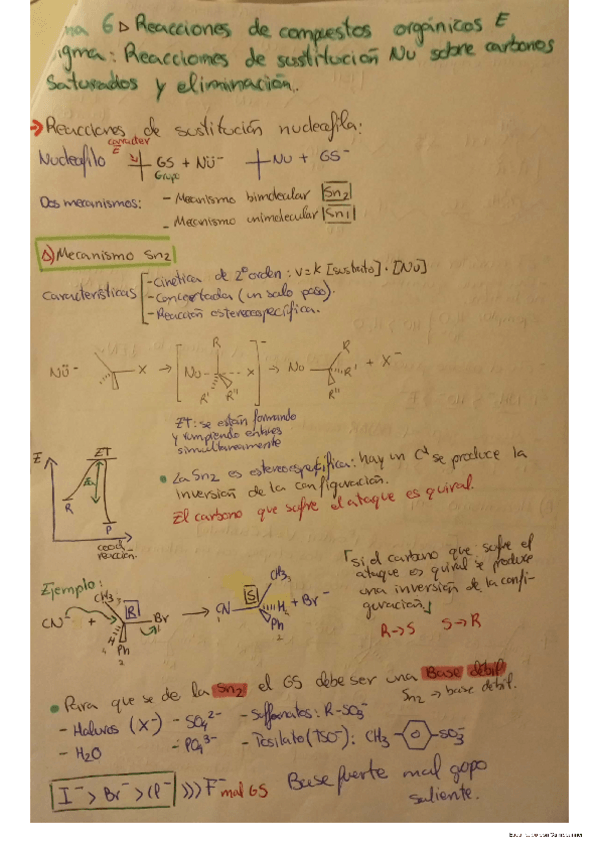 ma 6▷ Reacciones de compuestos orgánicos E
igma: Reacciones de sustitución Nu sobre carbonos
saturados y eliminación.
→ Reacciones de sustitución nucleofila:
caracter
E
Nucleofilo GS + Nü⁻ Nu + GS⁻
Grupo
Dos mecanismos: - Mecanismo bimolecular |Sn2|
- Mecanismo unimolecular |Sn1|
Δ) Mecanismo Sn2
Características
- Cinetica de 2º orden: v = k [sustrato] · [Nü]
- Concertada (un solo paso).
- Reacción estereoespecífica.
Nü⁻ X → [Nu X R R' R'']⁻ → Nu R R' R'' + X⁻
ET: se están formando
y rompiendo enlaces
simultaneamente
E ET
Ea
R P
coord.
reacción.
• La Sn2 es estereoespecífica: hay un C* se produce la
inversión de la configuración.
El carbono que sufre el ataque es quiral.
Ejemplo:
CN⁻ + CH₃ 3 R Br H 4 Ph 2 → CN 1 S CH₃ 3 H 4 Ph 2 + Br⁻
"si el carbono que sufre el
ataque es quiral se produce
una inversión de la confi-
guración"
R→S S→R
• Para que se de la Sn2 el GS debe ser una Base débil
Sn2 → base debil.
- Haluros (X⁻) - SO₄²⁻ - Sulfonatos: R-SO₃⁻
- H₂O - PO₄³⁻ - Tosilato (TSO⁻): CH₃ SO₃⁻
I⁻ > Br⁻ > Cl⁻ >>> F⁻ mal GS Base fuerte mal gopo
saliente.